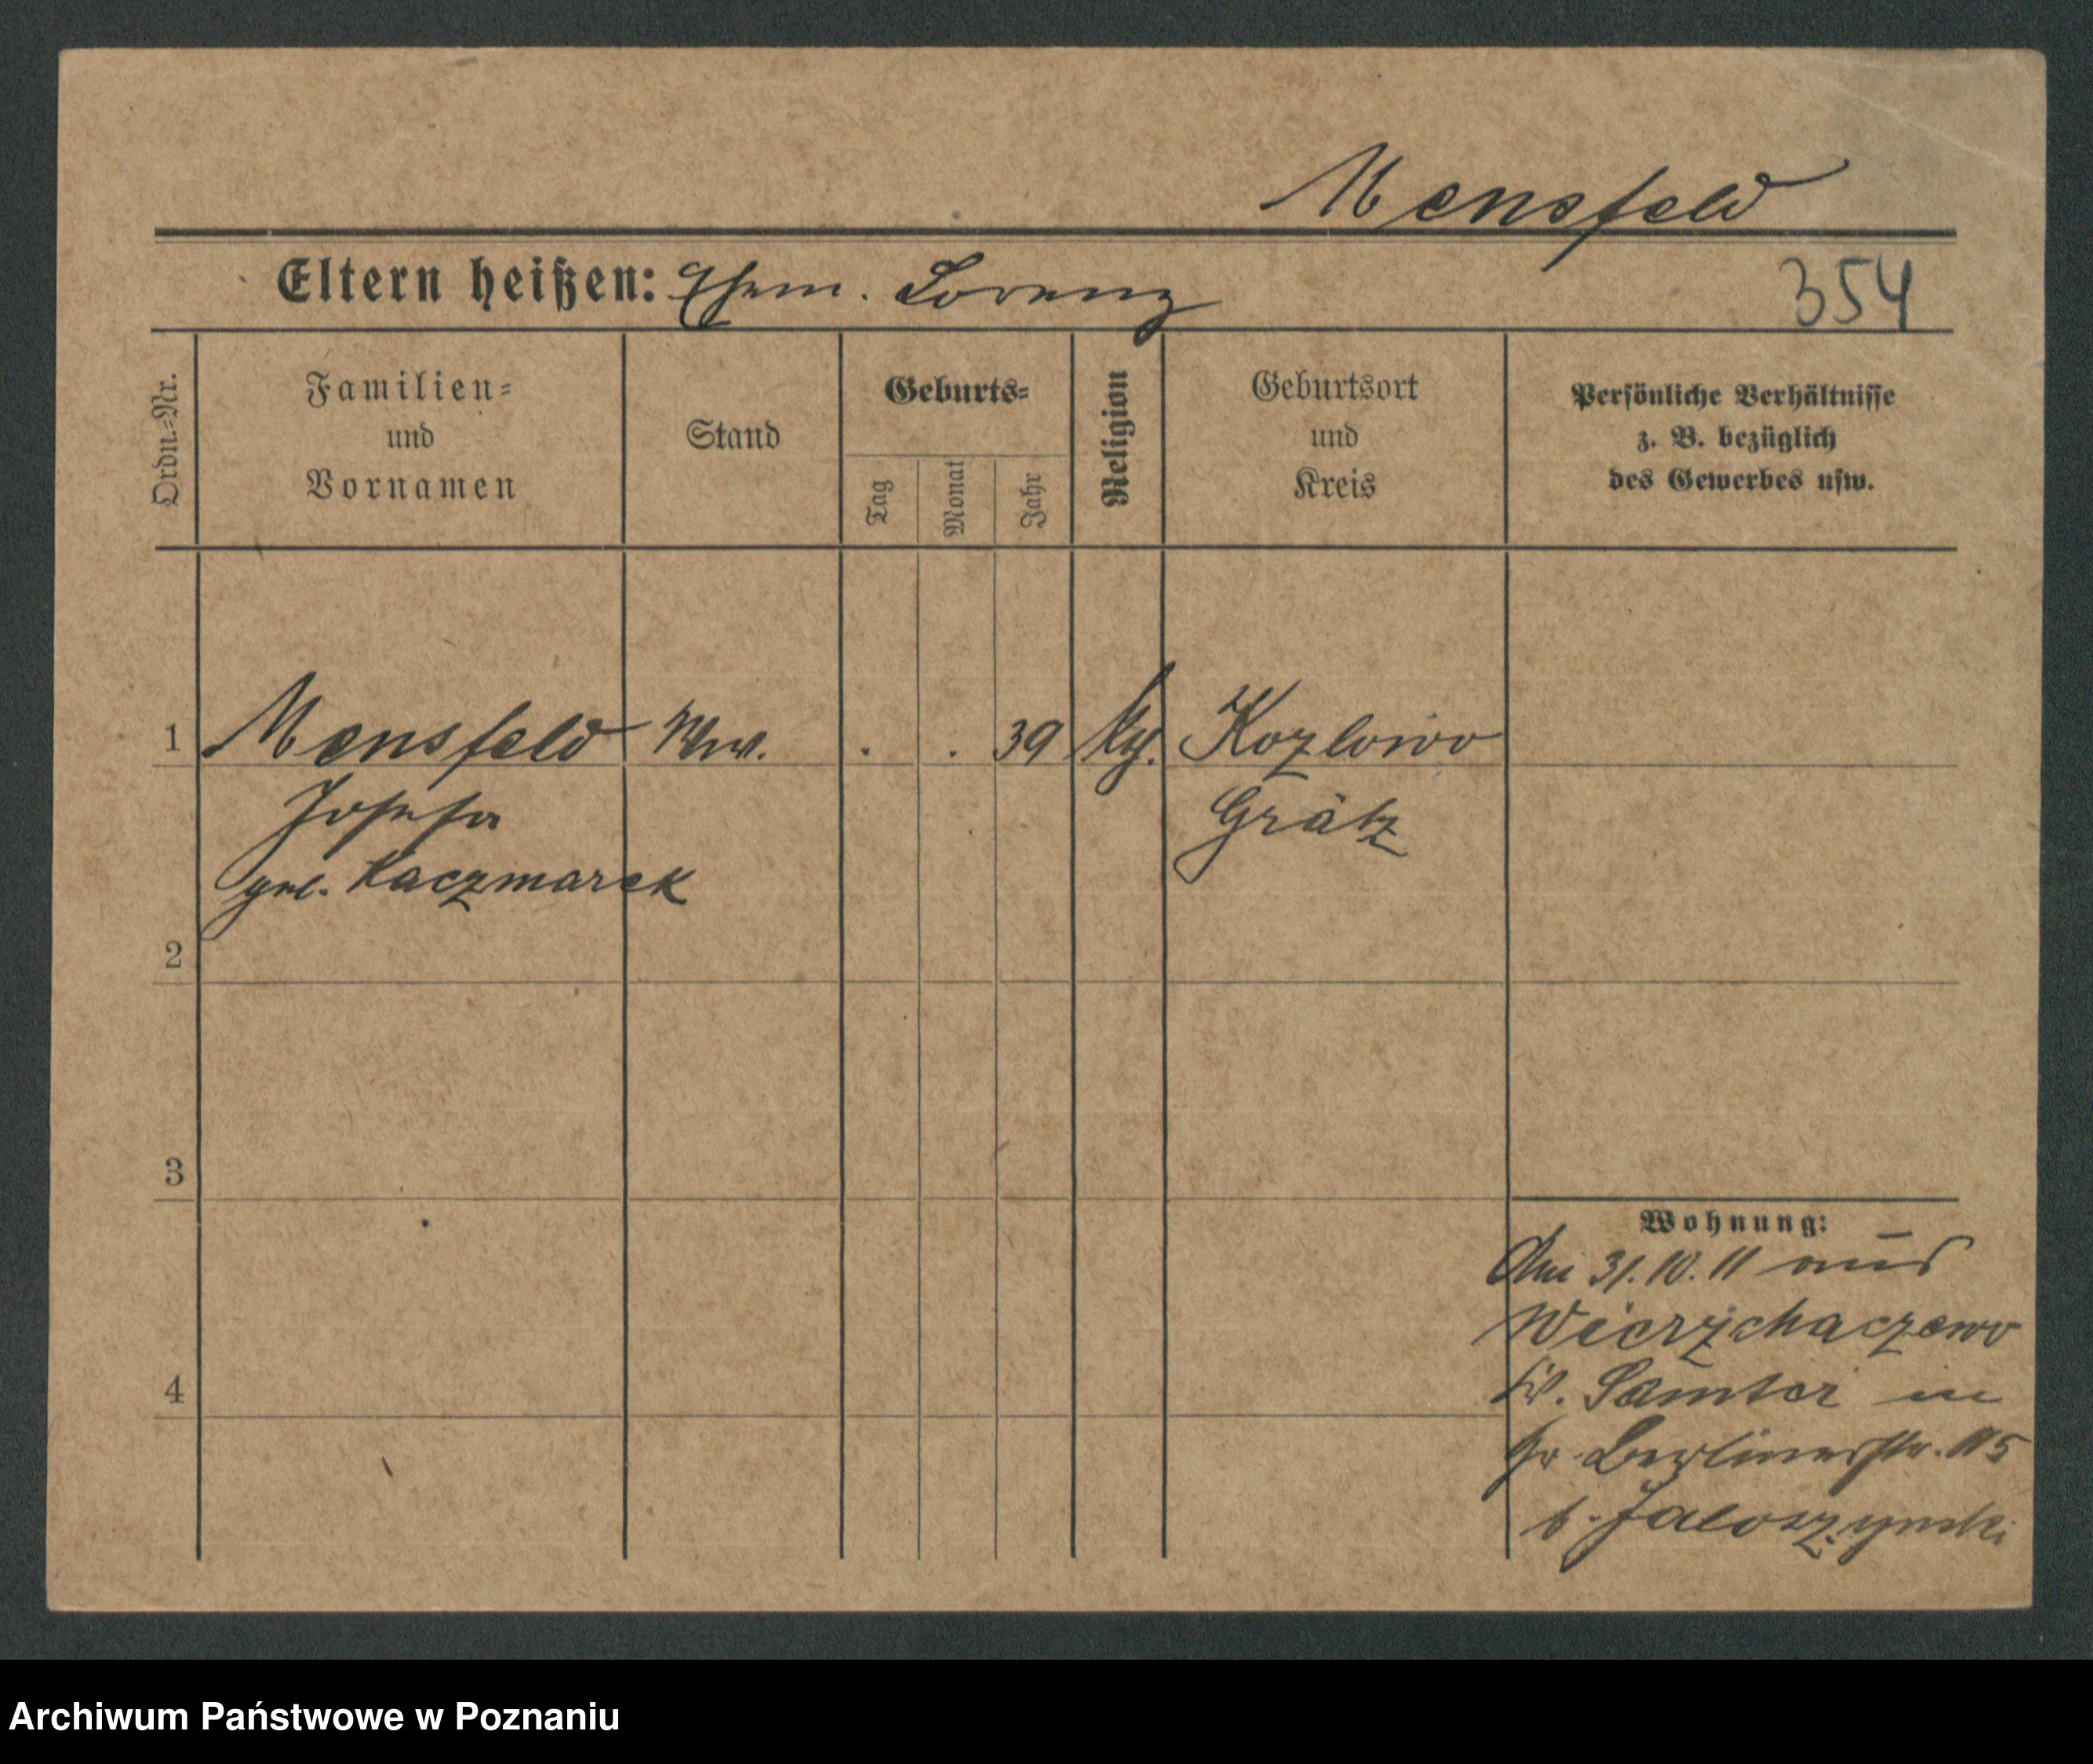 Mensfeld
Eltern heißen: Ehem. Lorenz
354
Ordn.=Nr.
Familien=
und
Vornamen
Stand
Geburts=
Tag
Monat
Jahr
Religion
Geburtsort
und
Kreis
Persönliche Verhältnisse
z. B. bezüglich
des Gewerbes usw.
1 Mensfeld Wwe. . . 39 Kozlowo
Josefa Grätz
geb. Kaczmarek
2
3
Wohnung:
Am 31.10.11 aus
Wierzchaczewo
4
Kr. Samter in
Gr. Berlinerstr. 115
b. Jaloszynski
Archiwum Państwowe w Poznaniu